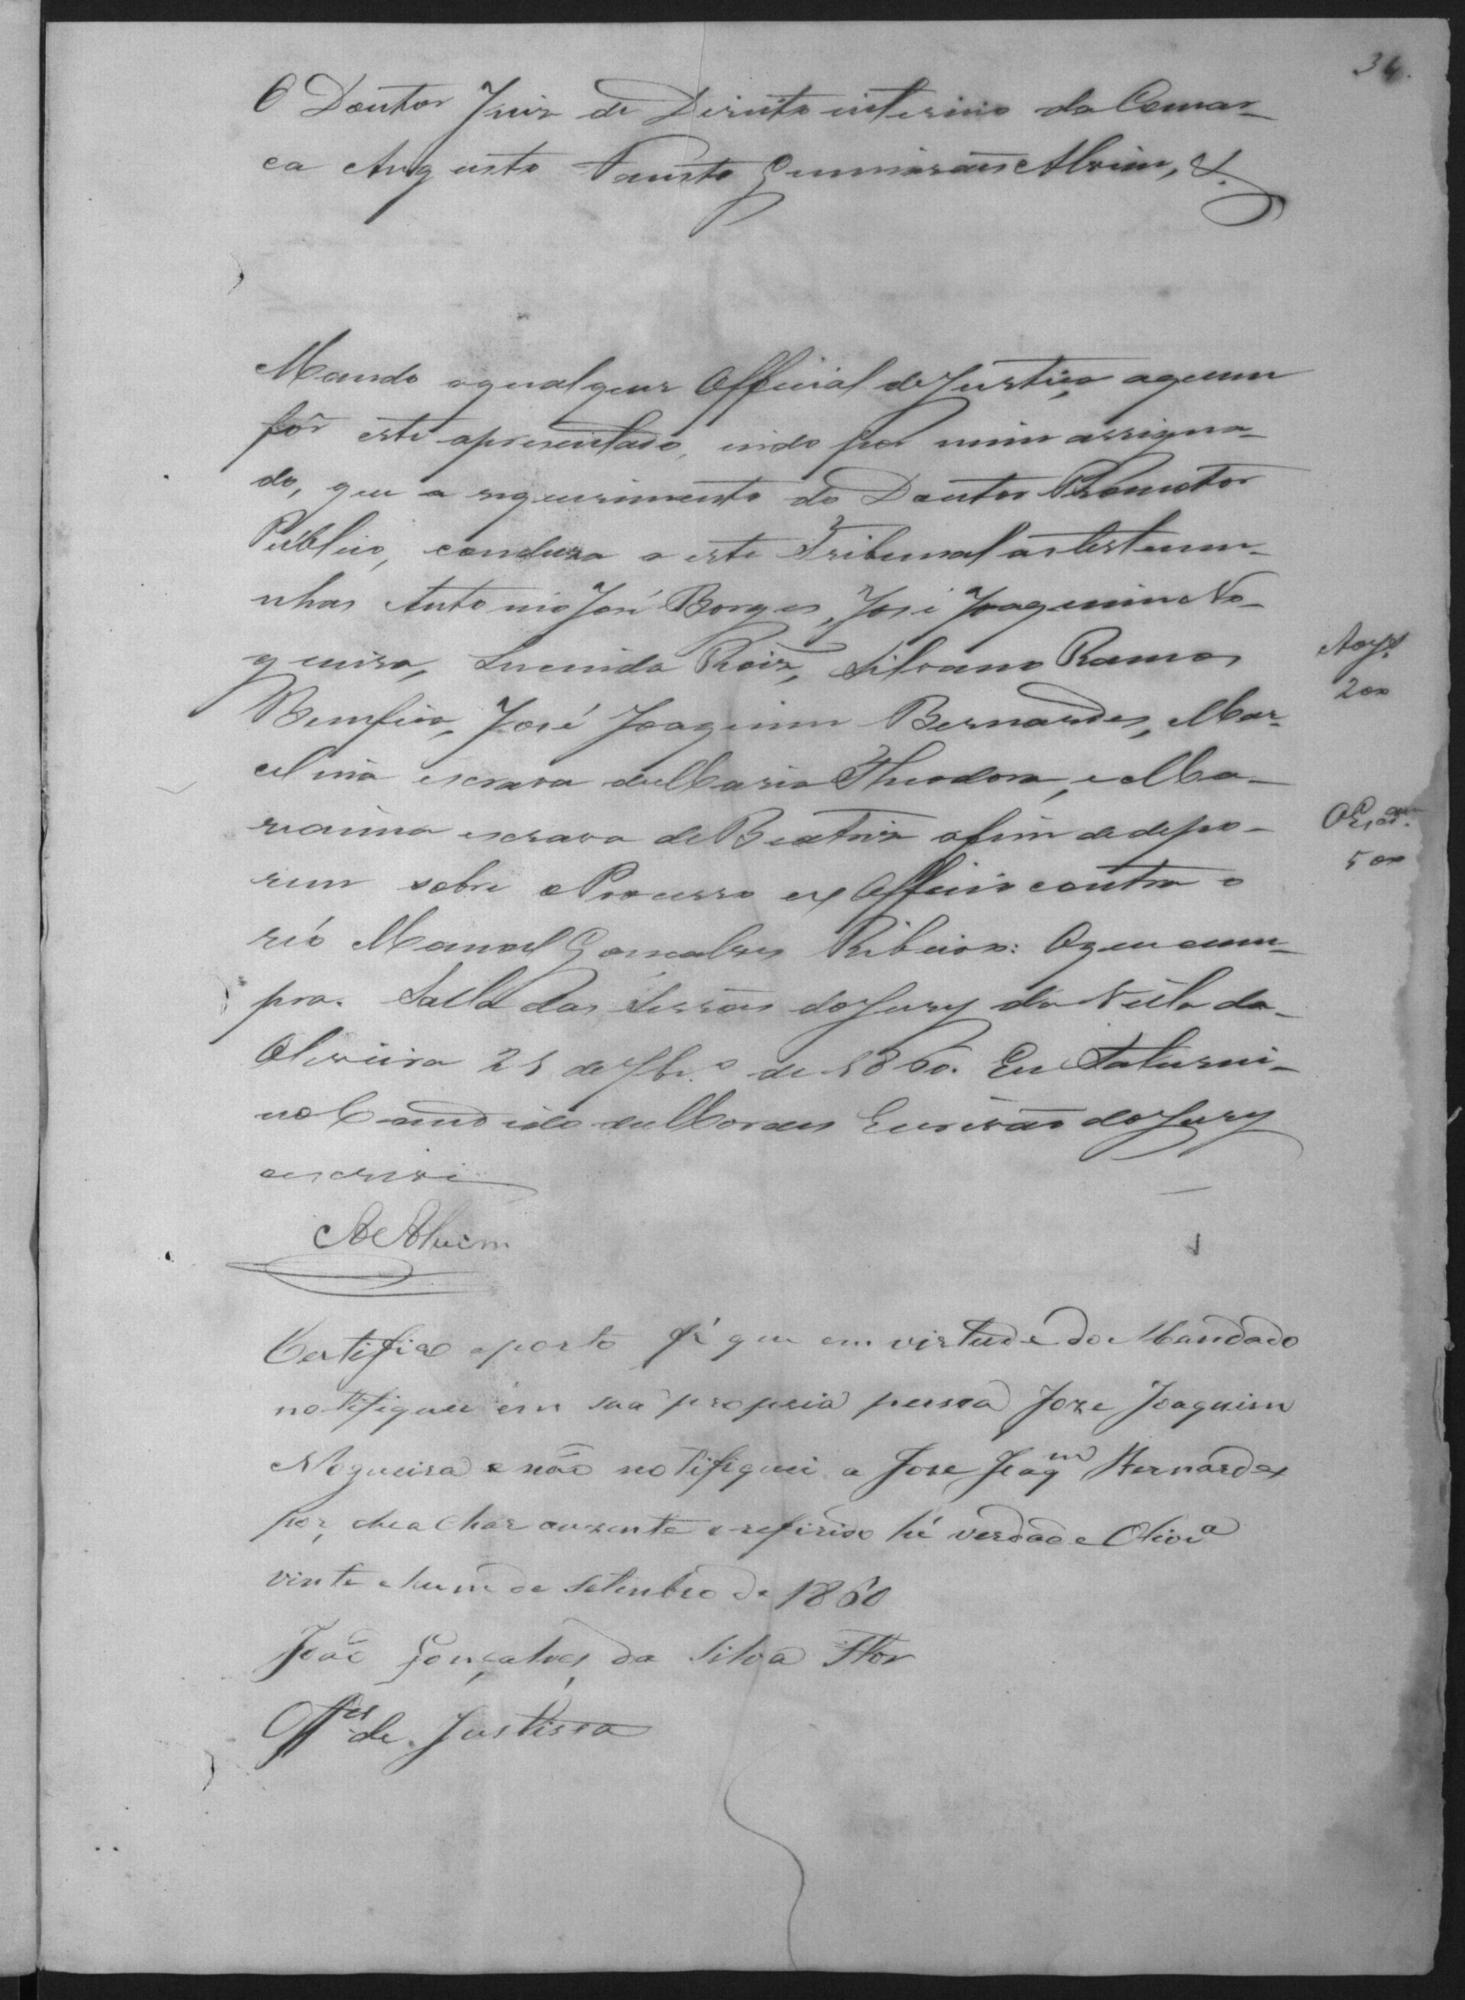 34.
O Doutor Juiz de Direito interino da Comar-
ca Augusto Fausto Guimarães Alvim, &.
Mando a qualquer Official de Justiça a quem
fôr este apresentado, indo por mim assigna-
do, que a requerimento do Doutor Promotor
Publico, conduza a este Tribunal as testemu-
nhas Antonio José Borges, José Joaquim No-
gueira, Lucinda Roiz, Silvano Ramos
Bemfica, José Joaquim Bernardes, Mar-
celina escrava de Maria Theodora, e Ma-
rianna escrava de Beatriz afim de depo-
rem sobre o Processo ex Officio contra o
réo Manoel Gonçalves Ribeiro: O que cum-
pra. Salla das Sessões do Jury da Villa da
Oliveira 21 de 7br.o de 1860. Eu Saturni-
no Candido de Moraes Escrivão do Jury
escrivi
A Alvim
200
500
Certifico e porto fé que em virtude do Mandado
notifiquei em sua propria pessoa Joze Joaquim
Nogueira e não notifiquei a Joze Joaqm Bernardes
por se achar auzente o referido hé verdade Olivra
vinte e hum de Setenbro de 1860
João Gonçalves da Silva Flor
Offal de Justissa